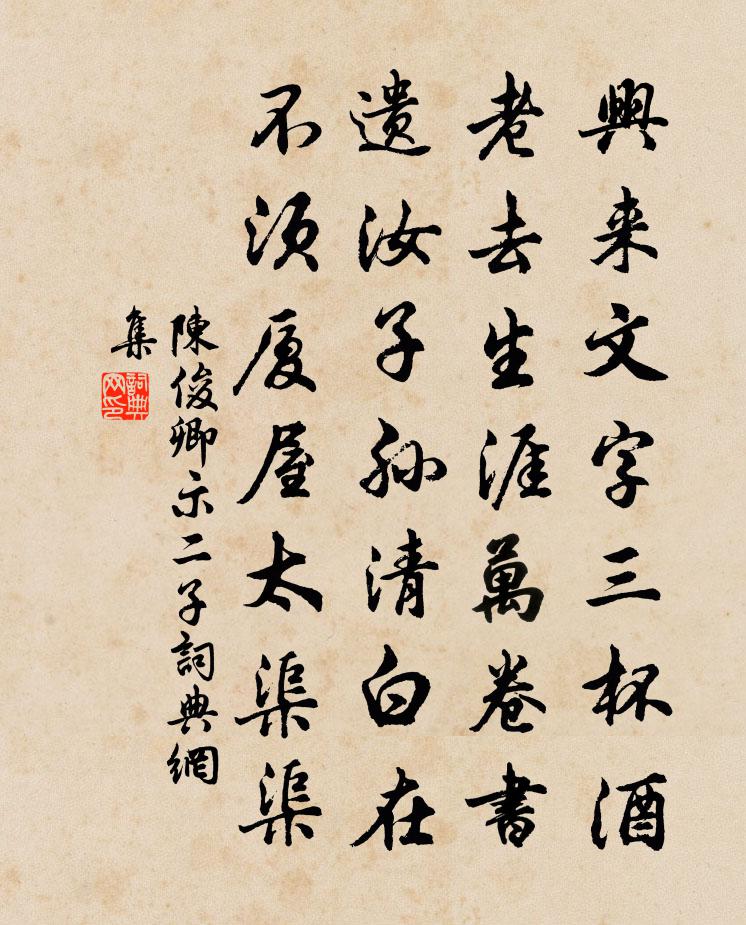 興来文字三杯酒
老去生涯萬卷書
遺汝子孫清白在
不須厦屋太渠渠
陳俊卿示二子詞典網
集
詞典
网印